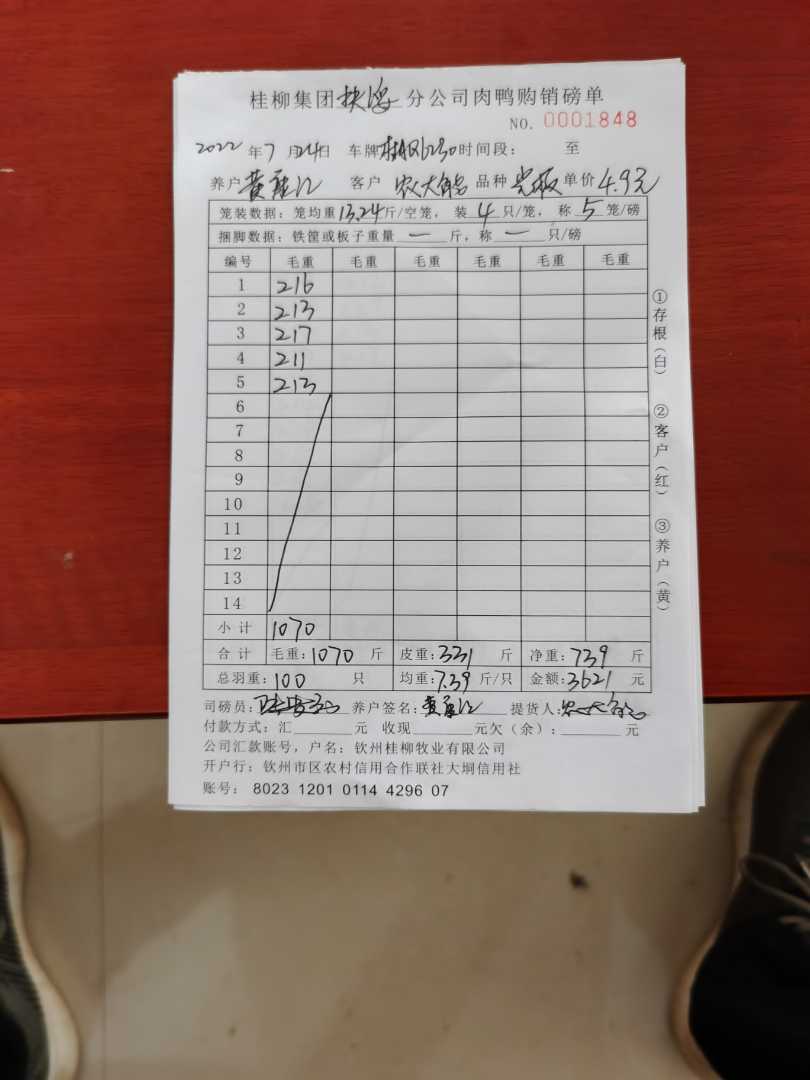 桂柳集团 分公司肉鸭购销磅单
NO. 0001848
2022 年 7 月 24 日 车牌 时间段: 至
养户 黄 江 客户 农大 品种 光板 单价 4.9元
笼装数据: 笼均重 13.24 斤/空笼, 装 4 只/笼, 称 5 笼/磅
捆脚数据: 铁筐或板子重量 — 斤, 称 — 只/磅
编号 毛重 毛重 毛重 毛重 毛重 毛重
1 216
2 213
3 217
4 211
5 213
6
7
8
9
10
11
12
13
14
小计 1070
合计 毛重: 1070 斤 皮重: 331 斤 净重: 739 斤
总羽重: 100 只 均重: 7.39 斤/只 金额: 3621 元
司磅员: 养户签名: 黄 江 提货人: 农大
付款方式: 汇 元 收现 元欠(余): 元
公司汇款账号, 户名: 钦州桂柳牧业有限公司
开户行: 钦州市区农村信用合作联社大垌信用社
账号: 8023 1201 0114 4296 07
①存根(白) ②客户(红) ③养户(黄)